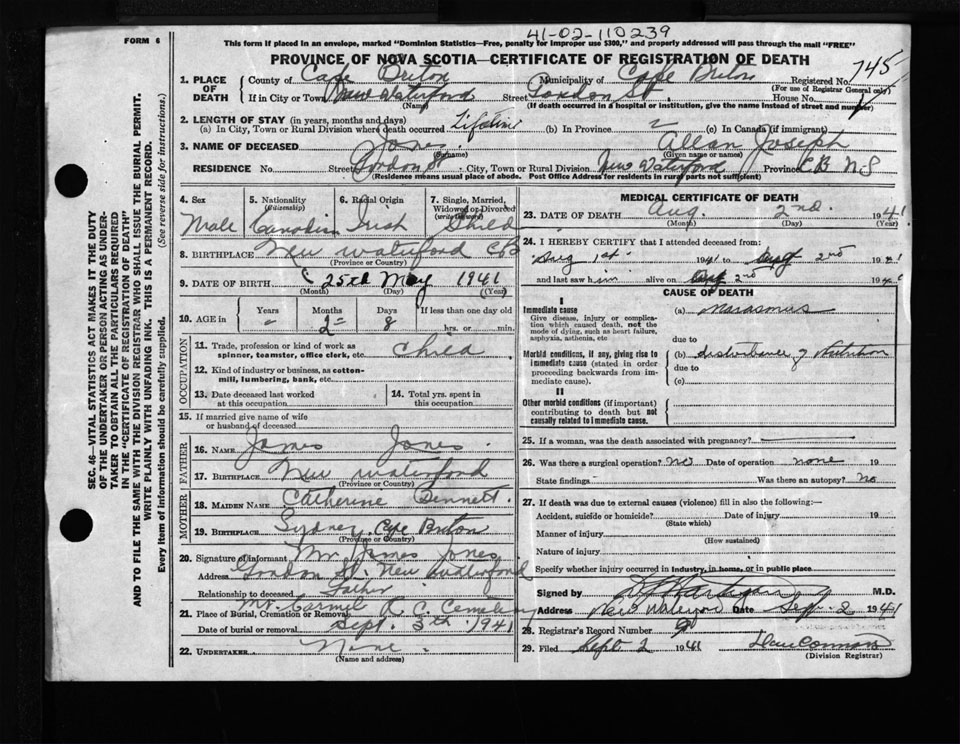 41-02-110239
FORM 6
This form if placed in an envelope, marked "Dominion Statistics—Free, penalty for improper use $300," and properly addressed will pass through the mail "FREE"
PROVINCE OF NOVA SCOTIA—CERTIFICATE OF REGISTRATION OF DEATH
1. PLACE OF DEATH County of Cape Breton Municipality of Cape Breton Registered No. 745
(For use of Registrar General only)
If in City or Town New Waterford Street Gordon St. House No.
(Name) (If death occurred in a hospital or institution, give the name instead of street and number)
2. LENGTH OF STAY (in years, months and days)
(a) In City, Town or Rural Division where death occurred Lifetime (b) In Province (c) In Canada (if immigrant)
3. NAME OF DECEASED Jones Allan Joseph
(Surname) (Given name or names)
RESIDENCE No. Street Gordon St City, Town or Rural Division New Waterford Province C B N-S
(Residence means usual place of abode. Post Office Address for residents in rural parts not sufficient)
4. Sex Male
5. Nationality (Citizenship) Canadian
6. Racial Origin Irish
7. Single, Married, Widowed or Divorced (write the word)
8. BIRTHPLACE New Waterford CB
(Province or Country)
9. DATE OF BIRTH 25th May 1941
(Month) (Day) (Year)
10. AGE in Years Months 2 Days 8 If less than one day old hrs. or min.
OCCUPATION
11. Trade, profession or kind of work as spinner, teamster, office clerk, etc.
12. Kind of industry or business, as cotton-mill, lumbering, bank, etc.
13. Date deceased last worked at this occupation
14. Total yrs. spent in this occupation
15. If married give name of wife or husband of deceased
FATHER
16. NAME James Jones
17. BIRTHPLACE New Waterford
(Province or Country)
MOTHER
18. MAIDEN NAME Catherine Bennett
19. BIRTHPLACE Sydney, Cape Breton
(Province or Country)
20. Signature of informant Mr. James Jones
Address Gordon St. New Waterford
Relationship to deceased Father
21. Place of Burial, Cremation or Removal Mt. Carmel R. C. Cemetery
Date of burial or removal Sept. 5th 1941
22. UNDERTAKER None
(Name and address)
MEDICAL CERTIFICATE OF DEATH
23. DATE OF DEATH Aug. 2nd. 1941
(Month) (Day) (Year)
24. I HEREBY CERTIFY that I attended deceased from:
Aug 1st 1941 to 2nd 1941
and last saw him alive on 2nd 194
CAUSE OF DEATH
I
Immediate cause
Give disease, injury or complication which caused death, not the mode of dying, such as heart failure, asphyxia, asthenia, etc
(a) Marasmus
due to
Morbid conditions, if any, giving rise to immediate cause (stated in order proceeding backwards from immediate cause).
(b) disturbance of Nutrition
due to
(c)
II
Other morbid conditions (if important) contributing to death but not causally related to immediate cause.
25. If a woman, was the death associated with pregnancy?
26. Was there a surgical operation? No Date of operation none 19
State findings Was there an autopsy? No
27. If death was due to external causes (violence) fill in also the following:—
Accident, suicide or homicide? Date of injury 19
(State which)
Manner of injury
(How sustained)
Nature of injury
Specify whether injury occurred in industry, in home, or in public place
Signed by M.D.
Address New Waterford Date Sept. 2 1941
28. Registrar's Record Number
29. Filed Sept 2 1941
(Division Registrar)
SEC. 46—VITAL STATISTICS ACT MAKES IT THE DUTY
OF THE UNDERTAKER OR PERSON ACTING AS UNDERTAKER TO OBTAIN ALL THE PARTICULARS REQUIRED
IN THE "CERTIFICATE OF REGISTRATION OF DEATH"
AND TO FILE THE SAME WITH THE DIVISION REGISTRAR WHO SHALL ISSUE THE BURIAL PERMIT.
WRITE PLAINLY WITH UNFADING INK. THIS IS A PERMANENT RECORD.
Every item of information should be carefully supplied. (See reverse side for instructions.)